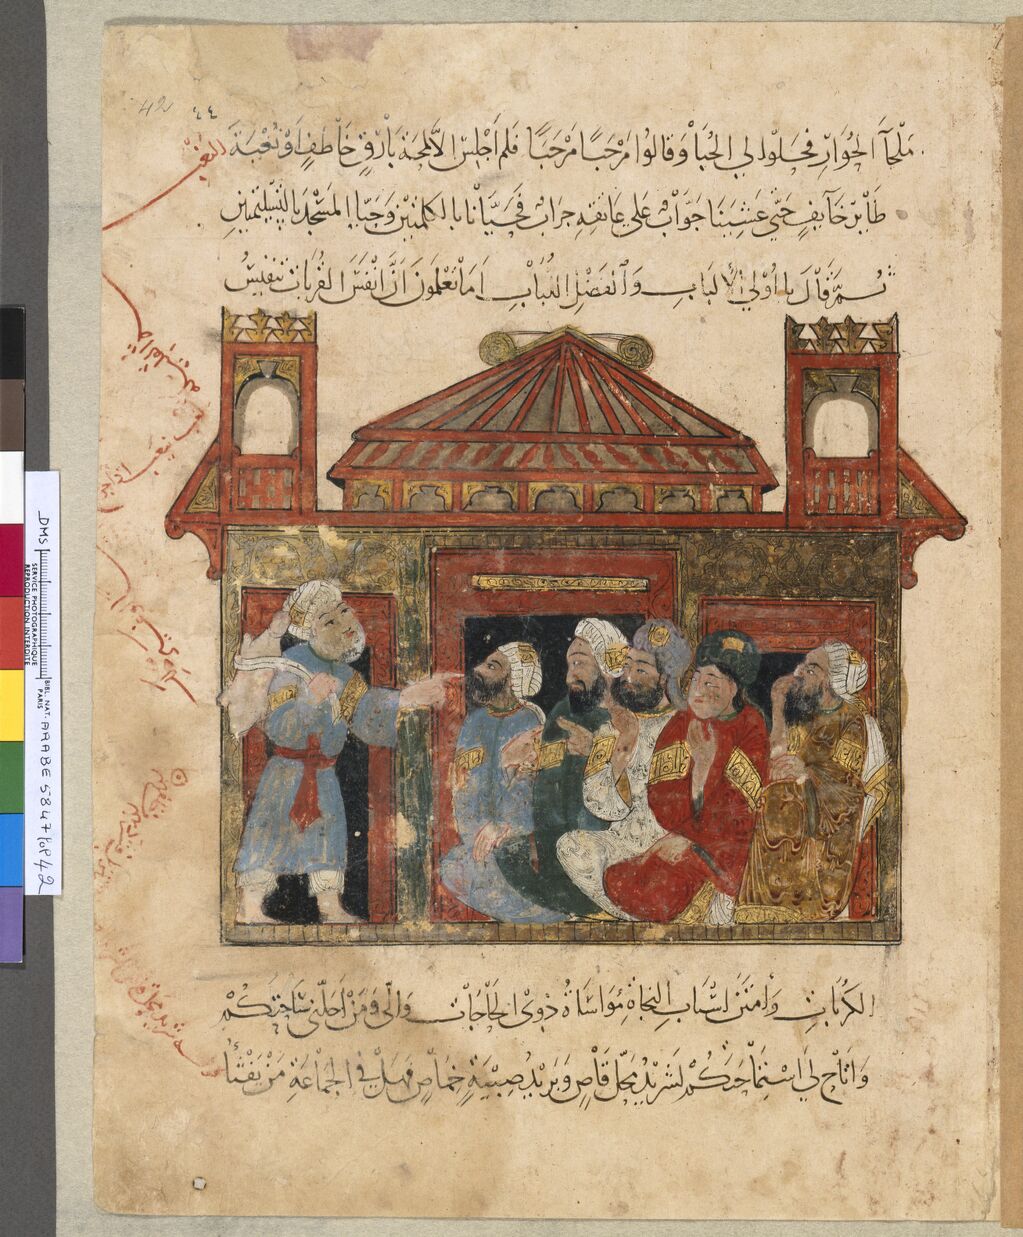 42 ٤٤
مَلْحَآءَ الجُوَارِ فَحَلّوا لِي الحُبَآ وَقَالُوا مَرْحَبًا مَرْحَبًا فَلَمْ اَجْلِسْ الَّا لَمْحَةَ بَارِقٍ خَاطِفٍ اَوْ نُغْبَةَ
طَآئِرٍ خَآئِفٍ حَتّى غَشِيَنَا جَوَّابٌ عَلى عَاتِقِهِ جِرَابٌ فَحَيَّانَا بِالكَلِمَتَيْنِ وَحَيّا المَسْجِدَ بِالتَّسْلِيمَتَيْنِ
ثُمَّ قَالَ يا اُوْلِي الاَلْبَابِ وَالْفَضْلِ اللُّبَابِ اَمَا تَعْلَمُونَ اَنَّ اَنْفَسَ القُرُبَاتِ تَنْفِيسُ
الكُرُبَاتِ وَاَمْتَنَ اَسْبَابِ النَّجَاةِ مُوَاسَاةُ ذَوِى الحَاجَاتِ وَاِنّى وَمَنْ اَحَلَّنِي سَاحَتَكُمْ
وَاَتَاحَ لِيَ اسْتِمَاحَتَكُمْ لَشَرِيْدُ مَحَلٍّ قَاصٍ وَبَرِيْدُ صِبْيَةٍ خِمَاصٍ فَهَلْ فِي الجَمَاعَةِ مَنْ يَفْثَأُ
DMS
SERVICE PHOTOGRAPHIQUE
REPRODUCTION INTERDITE
BIBL. NAT.
PARIS
ARABE 5847 Fol 42